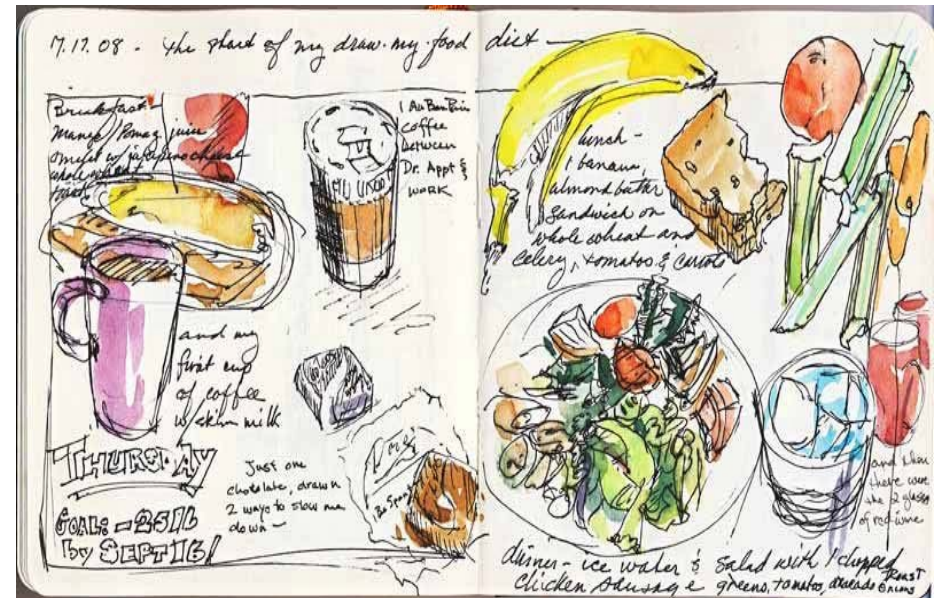 7.17.08 - the start of my draw-my-food diet —
Breakfast -
Mango/Pomag. juice
omelet w/ jalapeno cheese
whole wheat
toast
1 Au Bon Pain
coffee
between
Dr. Appt &
work
and my
first cup
of coffee
w/ skim milk
THURSDAY
GOAL: -25 lb
by SEPT 16!
Just one
chocolate, drawn
2 ways to slow me
down —
lunch -
1 banana,
almond butter
sandwich on
whole wheat and
celery, tomatos & carrots
and then
there were
the 2 glasses
of red wine
dinner - ice water & salad with 1 chopped
chicken sausage greens, tomatos, avocado roast onions